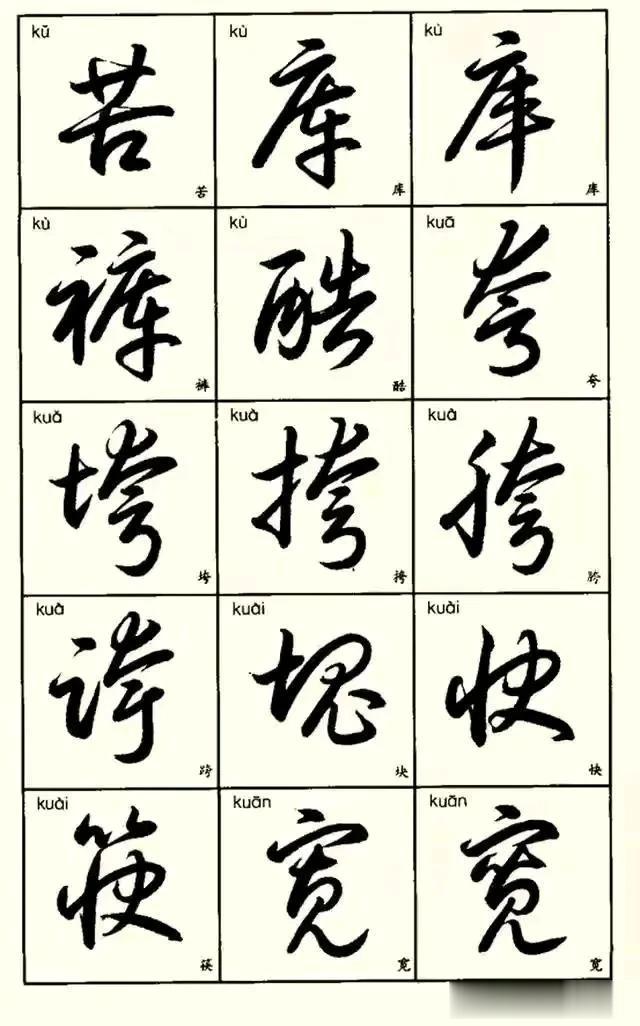 kǔ kù kù
苦 库 库
苦 库 库
kù kù kuā
裤 酷 夸
裤 酷 夸
kuǎ kuà kuà
垮 挎 胯
垮 挎 胯
kuà kuài kuài
跨 塊 快
跨 块 快
kuài kuān kuān
筷 宽 寬
筷 宽 宽